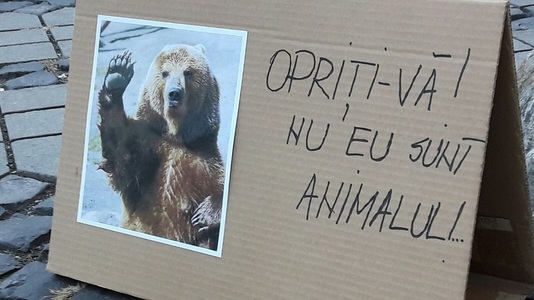 OPRIȚI-VĂ!
NU EU SUNT
ANIMALUL!...